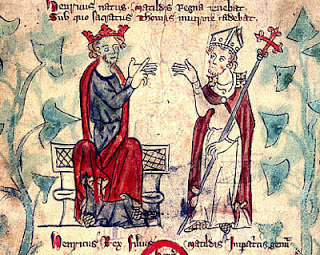 Henricus natus Matildis Regna tenebat
Sub quo sacratus Thomas mucrone cadebat
Henricus Rex filius Matildis Imperatricis